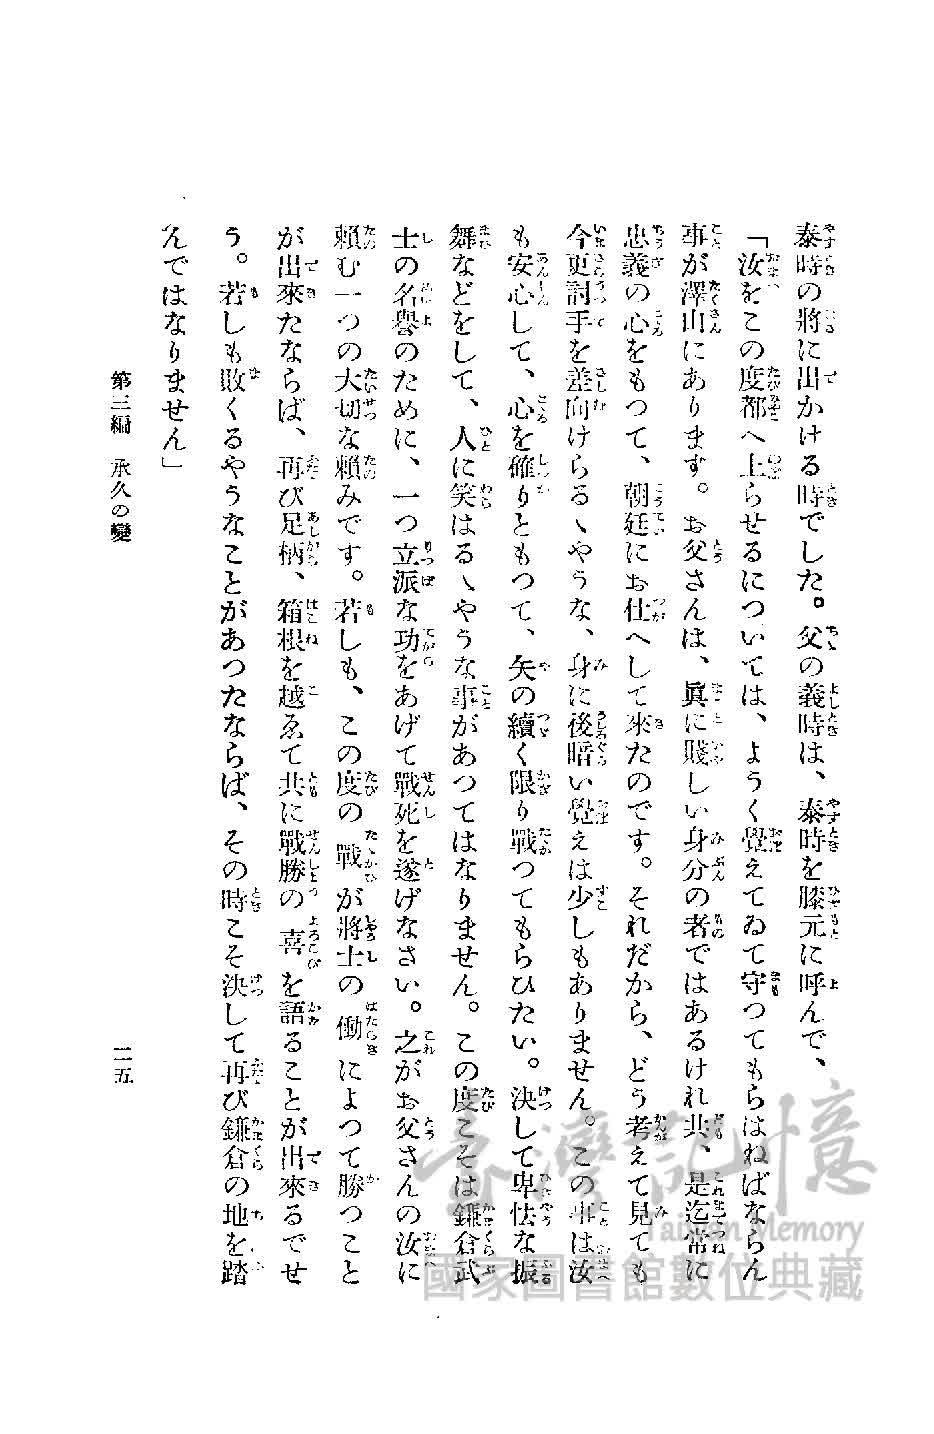 泰時の將に出かける時でした。父の義時は、泰時を膝元に呼んで、
「汝をこの度都へ上らせるについては、ようく覺えてゐて守つてもらはねばならん
事が澤山にあります。お父さんは、眞に賤しい身分の者ではあるけれ共、是迄常に
忠義の心をもつて、朝廷にお仕へして來たのです。それだから、どう考えて見ても
今更討手を差向けらるゝやうな、身に後暗い覺えは少しもありません。この事は汝
も安心して、心を確りともつて、矢の續く限り戰つてもらひたい。決して卑怯な振
舞などをして、人に笑はるゝやうな事があつてはなりません。この度こそは鎌倉武
士の名譽のために、一つ立派な功をあげて戰死を遂げなさい。之がお父さんの汝に
賴む一つの大切な賴みです。若しも、この度の戰が將士の働によつて勝つこと
が出來たならば、再び足柄、箱根を越ゑて共に戰勝の喜を語ることが出來るでせ
う。若しも敗くるやうなことがあつたならば、その時こそ決して再び鎌倉の地を踏
んではなりません」
第三編 承久の變
二五
臺灣記憶
Taiwan Memory
國家圖書館數位典藏